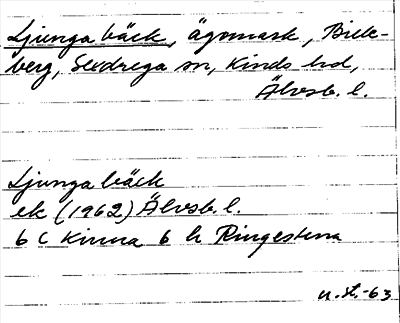 Ljunga bäck, ägomark, Birk-
berg, Sexdrega sn, Kinds hd,
Älvsb. l.
Ljunga bäck
ek (1962) Älvsb. l.
6 C Kinna 6 h Ringestena
u. st. -63